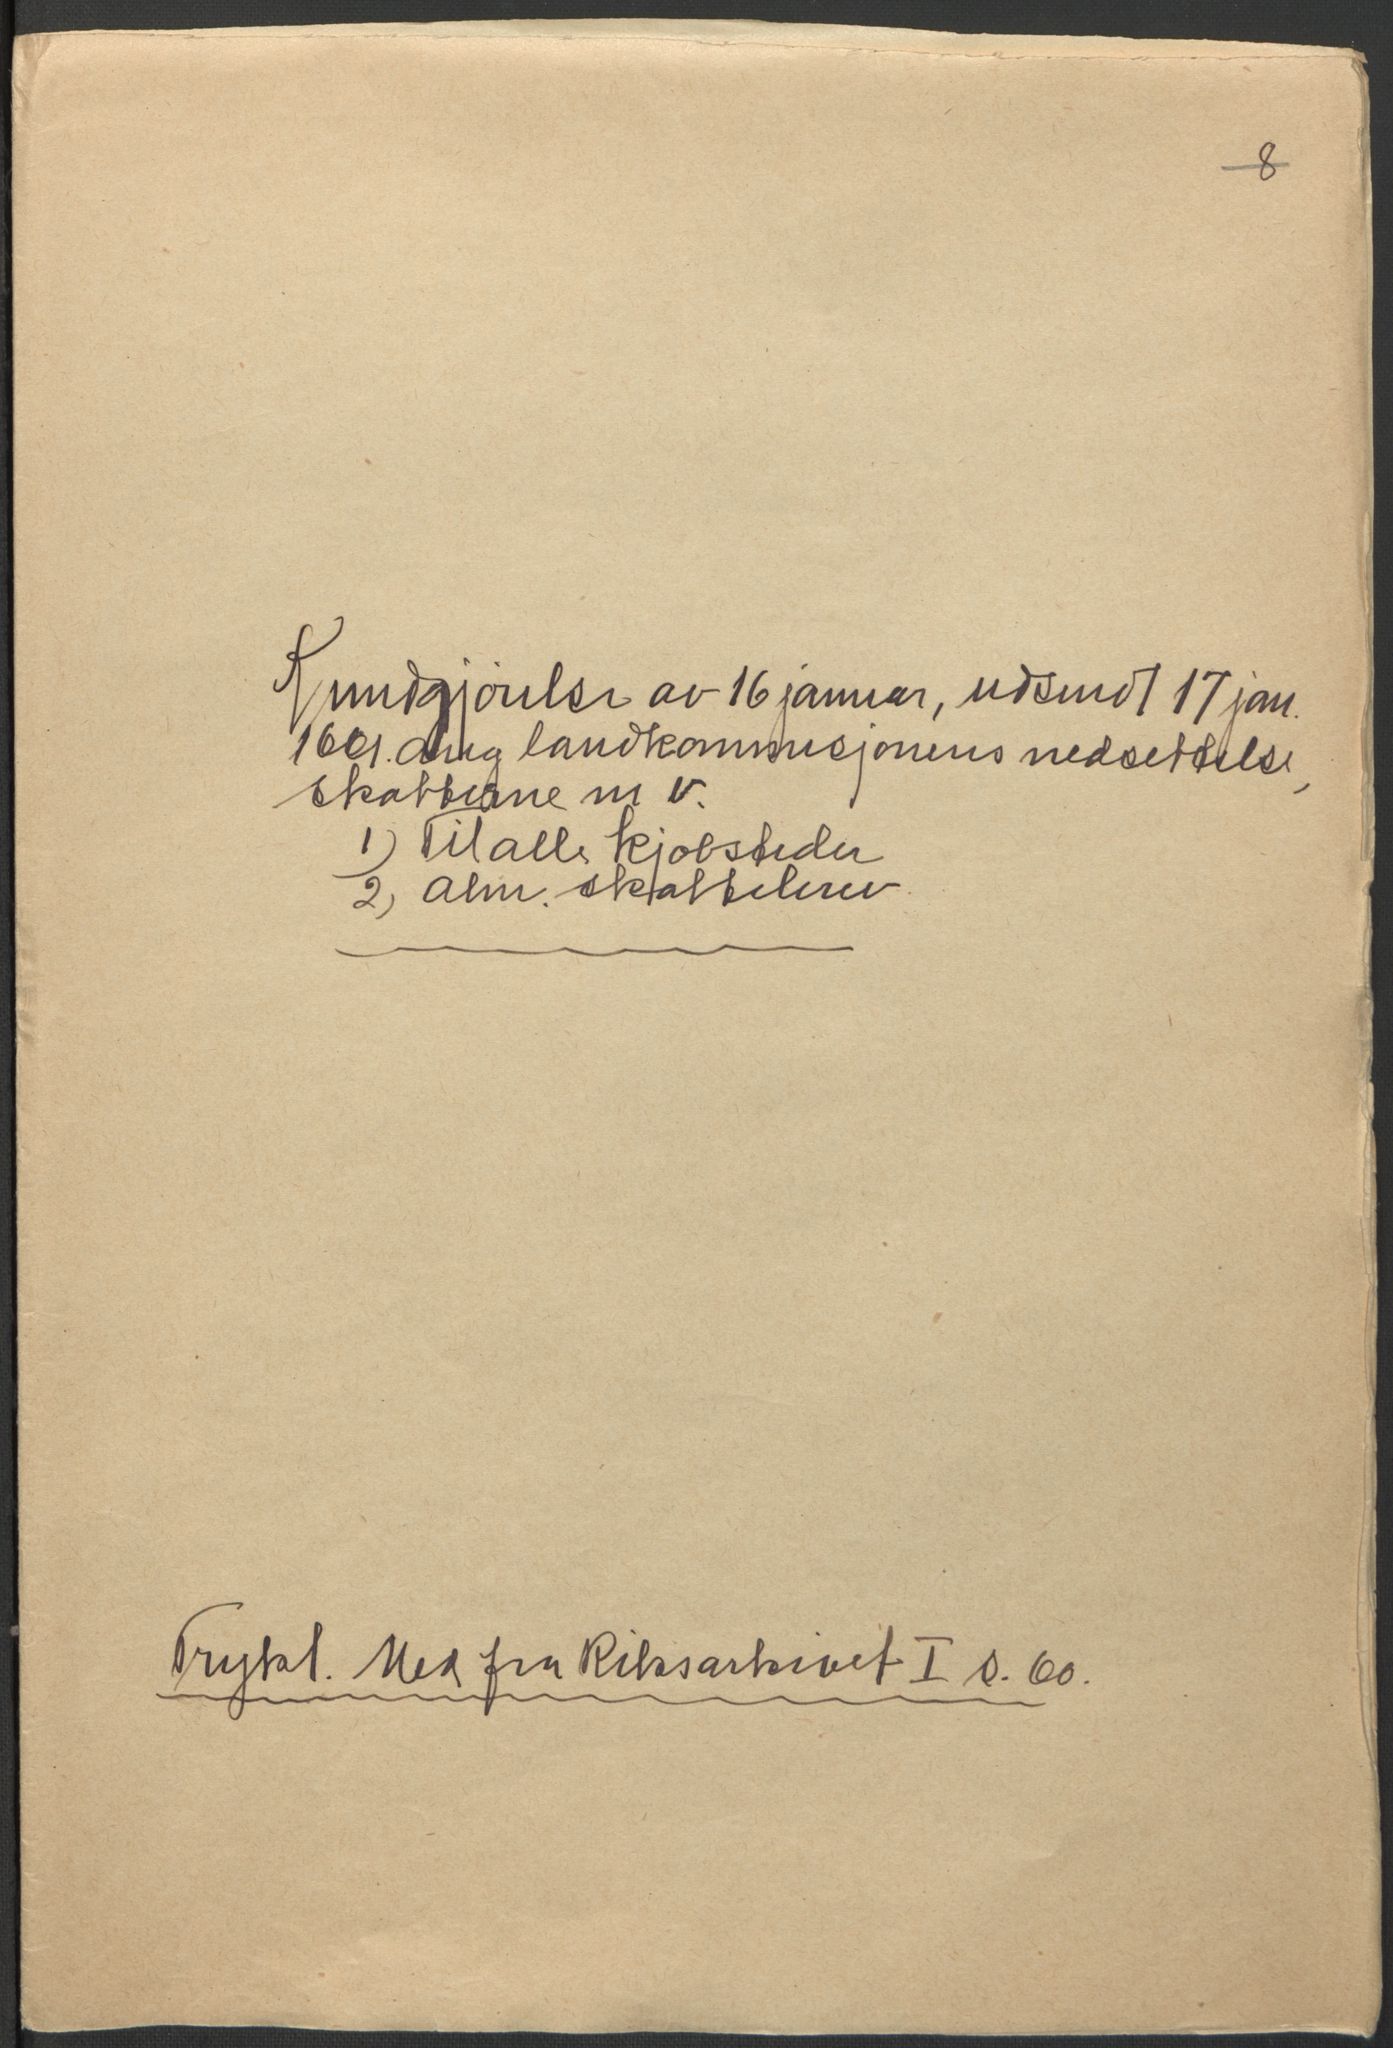 8
Kundgjørelse av 16 januar, udsendt 17 jan.
1661. ang landkommisjonens nedsettelse,
skatterne m v.
1) Til alle kjøbsteder
2) Alm. skattebrev
Trykt. Med fra Riksarkivet I s. 60.